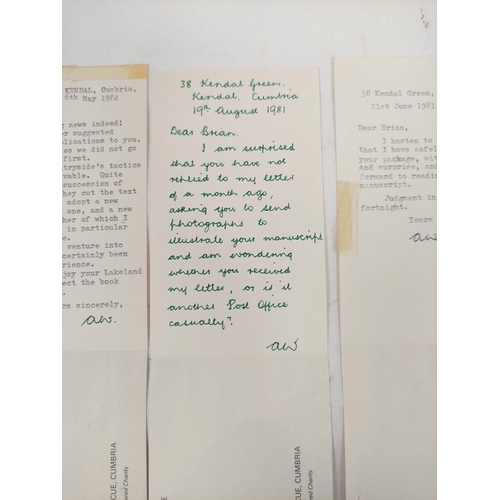 KENDAL, Cumbria,
6th May 1984
news indeed!
suggested
lications to you.
es we did not go
first.
tryside's tactics
vable. Quite
succession of
hey cut the text
adopt a new
one, and a new
her of which I
in particular
e.
venture into
certainly been
rience.
joy your Lakeland
ect the book
rs sincerely,
aw.
CUE, CUMBRIA
ered Charity
38 Kendal Green,
Kendal, Cumbria
19th August 1981
Dear Brian,
I am surprised
that you have not
replied to my letter
of a month ago,
asking you to send
photographs to
illustrate your manuscript
and am wondering
whether you received
my letter, or is it
another Post Office
casualty?
aw
CUE, CUMBRIA
ered Charity
38 Kendal Green,
21st June 1981
Dear Brian,
I hasten to
that I have safel
your package, wit
and surprise, and
forward to readi
manuscript.
Judgment in
fortnight.
Yours
aw